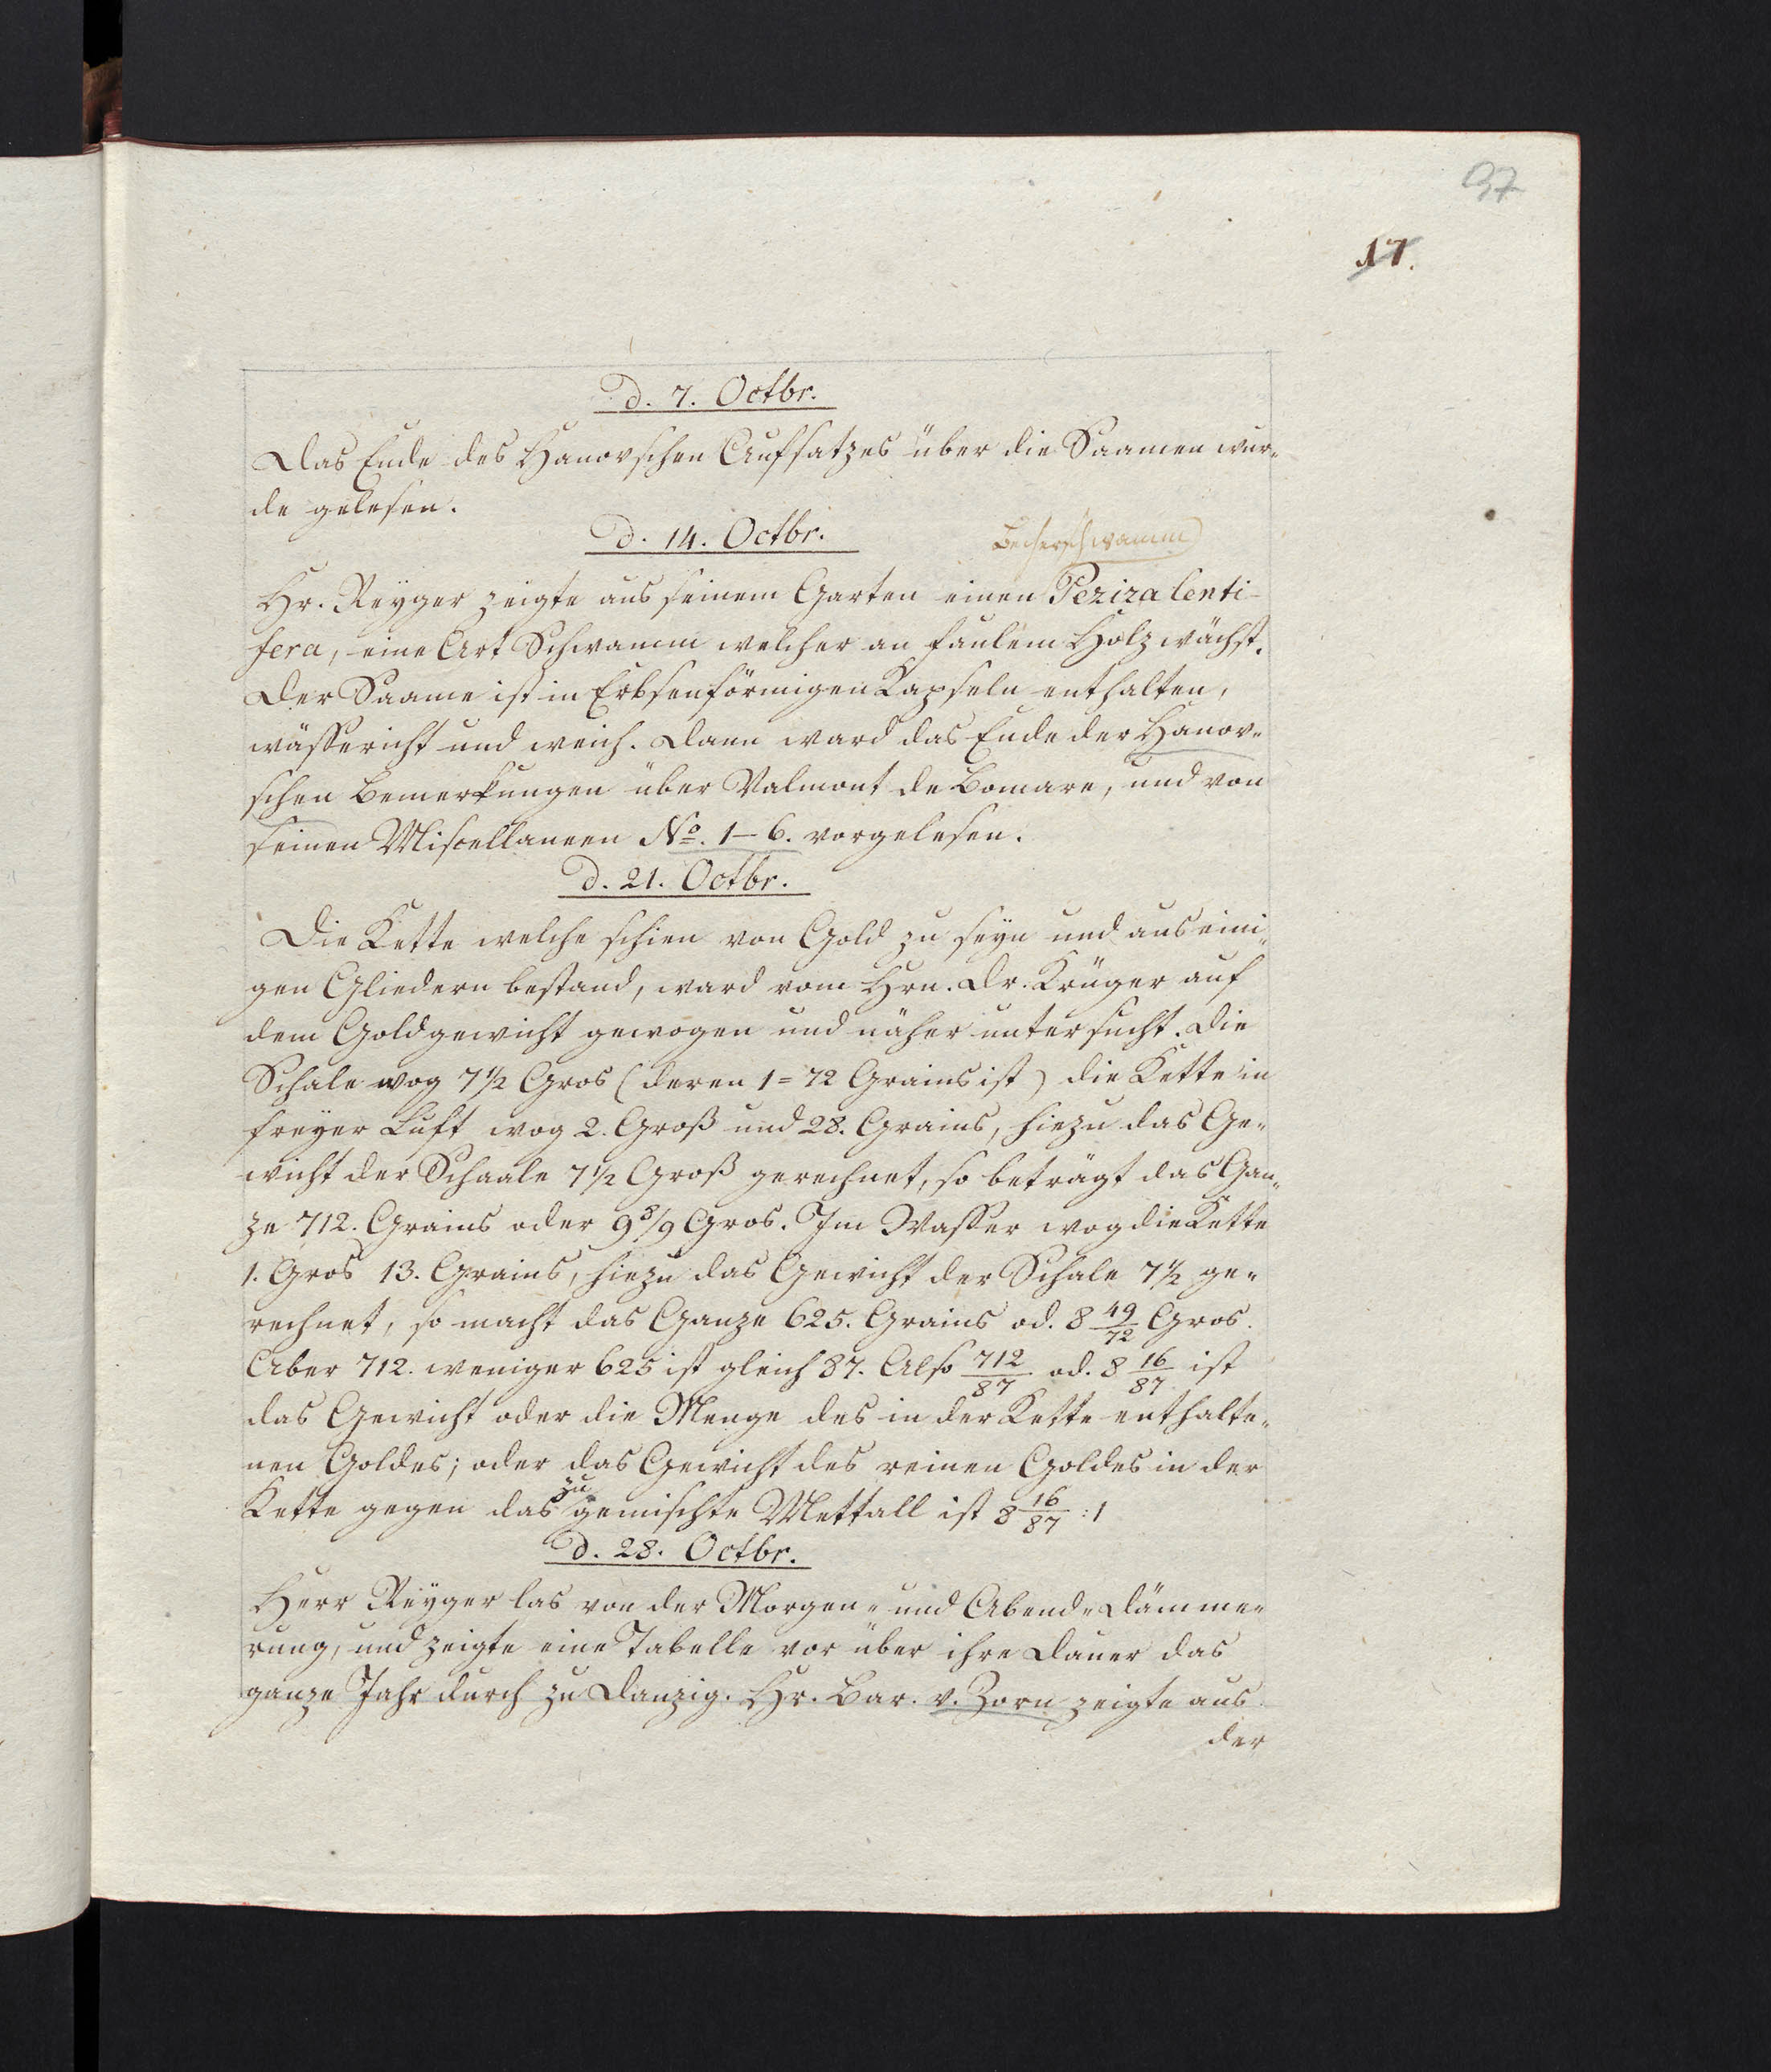 97
17.
d. 7. Octbr.
Das Ende des Hanovschen Aufsatzes über die Saamen wur-
de gelesen.
d. 14. Octbr.
Becherschwamm
Hr. Reyger zeigte aus seinem Garten einen Peziza lenti-
fera, eine Art Schwamm welcher an faulem Holz wächst.
Der Saame ist in Erbsenförmigen Kapseln enthalten,
wässericht und weich. Dann ward das Ende der Hanov-
schen Bemerkungen über Valmont de Bomare, und von
seinen Miscellaneen No. 1–6. vorgelesen.
d. 21. Octbr.
Die Kette welche schien von Gold zu seyn und aus eini-
gen Gliedern bestand, ward vom Hrn. Dr. Krüger auf
dem Goldgewicht gewogen und näher untersucht. Die
Schale wog 7 1/2 Gros (deren 1 = 72 Grains ist) die Kette in
freyer Luft wog 2. Groß und 28. Grains, hiezu das Ge-
wicht der Schaale 7 1/2 Groß gerechnet, so beträgt das Gan-
ze 712. Grains oder 9 8/9 Gros. Im Wasser wog die Kette
1. Gros 13. Grains, hiezu das Gewicht der Schale 7 1/2 ge-
rechnet, so macht das Ganze 625. Grains od. 8 49/72 Gros.
Aber 712. weniger 625 ist gleich 87. Also 712/87 od. 8 16/87 ist
das Gewicht oder die Menge des in der Kette enthalte-
nen Goldes; oder das Gewicht des reinen Goldes in der
Kette gegen das zugemischte Mettall ist 8 16/87 : 1
d. 28. Octbr.
Herr Reyger las von der Morgen- und Abend-Dämme-
rung, und zeigte eine Tabelle vor über ihre Dauer das
ganze Jahr durch zu Danzig. Hr. Bar. v. Zorn zeigte aus
der